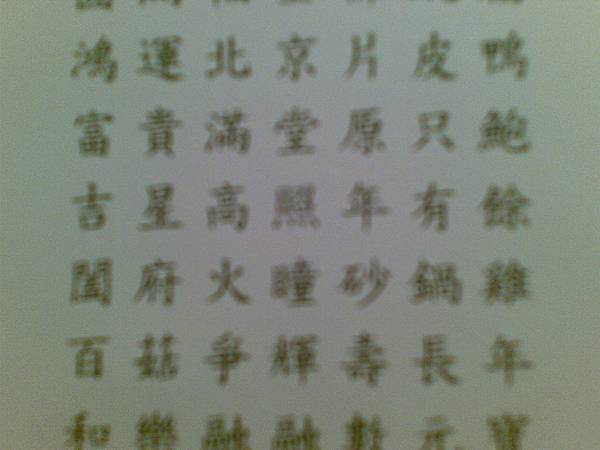 鴻運北京片皮鴨
富貴滿堂原只鮑
吉星高照年有餘
闔府火瞳砂鍋雞
百菇爭輝壽長年
和樂融融數元寶